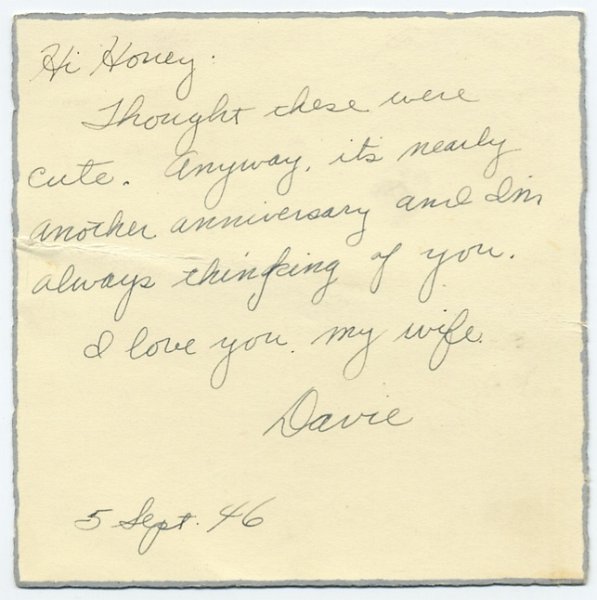 Hi Honey.
Thought these were
cute. Anyway, it's nearly
another anniversary and I'm
always thinking of you.
I love you my wife.
Davie
5 Sept. 46